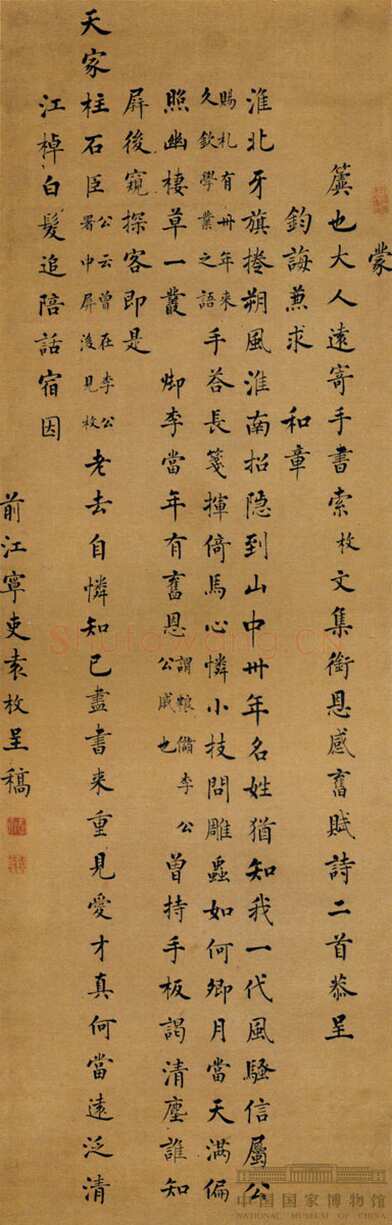 蒙
也大人遠寄手書索枚文集銜恩感舊賦詩二首恭呈
鈞誨兼求 和章
淮北牙旗捲朔風淮南招隱到山中卅年名姓猶知我一代風騷信屬公
賜札有卅年來
久欽學業之語
手答長箋揮倚馬心憐小技問雕蟲如何卿月當天滿偏
照幽棲草一叢 御李當年有舊恩
謂糧儲李公
公戚也
曾持手板謁清塵誰知
屏後窺探客即是
天家柱石臣
公云曾在李公
署中屏後見枚
老去自憐知己盡書來重見愛才真何當遠泛清
江棹白髮追陪話宿因
前江寧吏袁枚呈稿
中国国家博物馆
NATIONAL MUSEUM OF CHINA